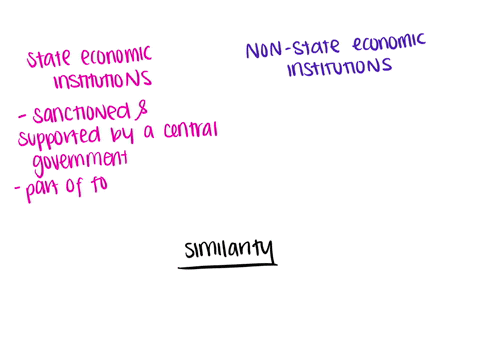 State economic
institutions
- sanctioned &
supported by a central
government
- part of fo
Non-state economic
institutions
similarity